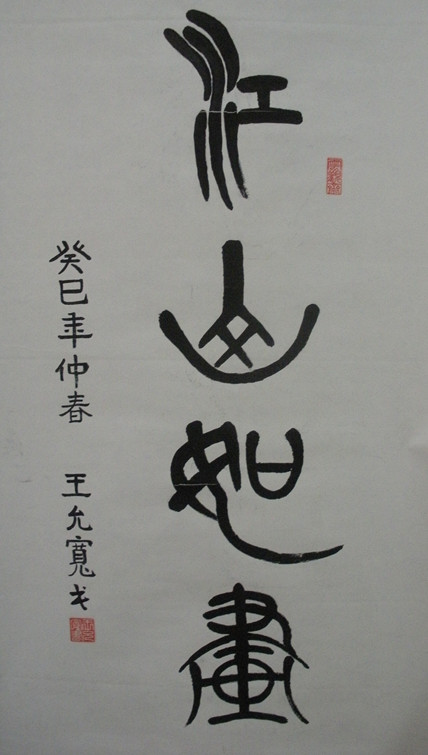 江山如画
癸巳年仲春 王允寬